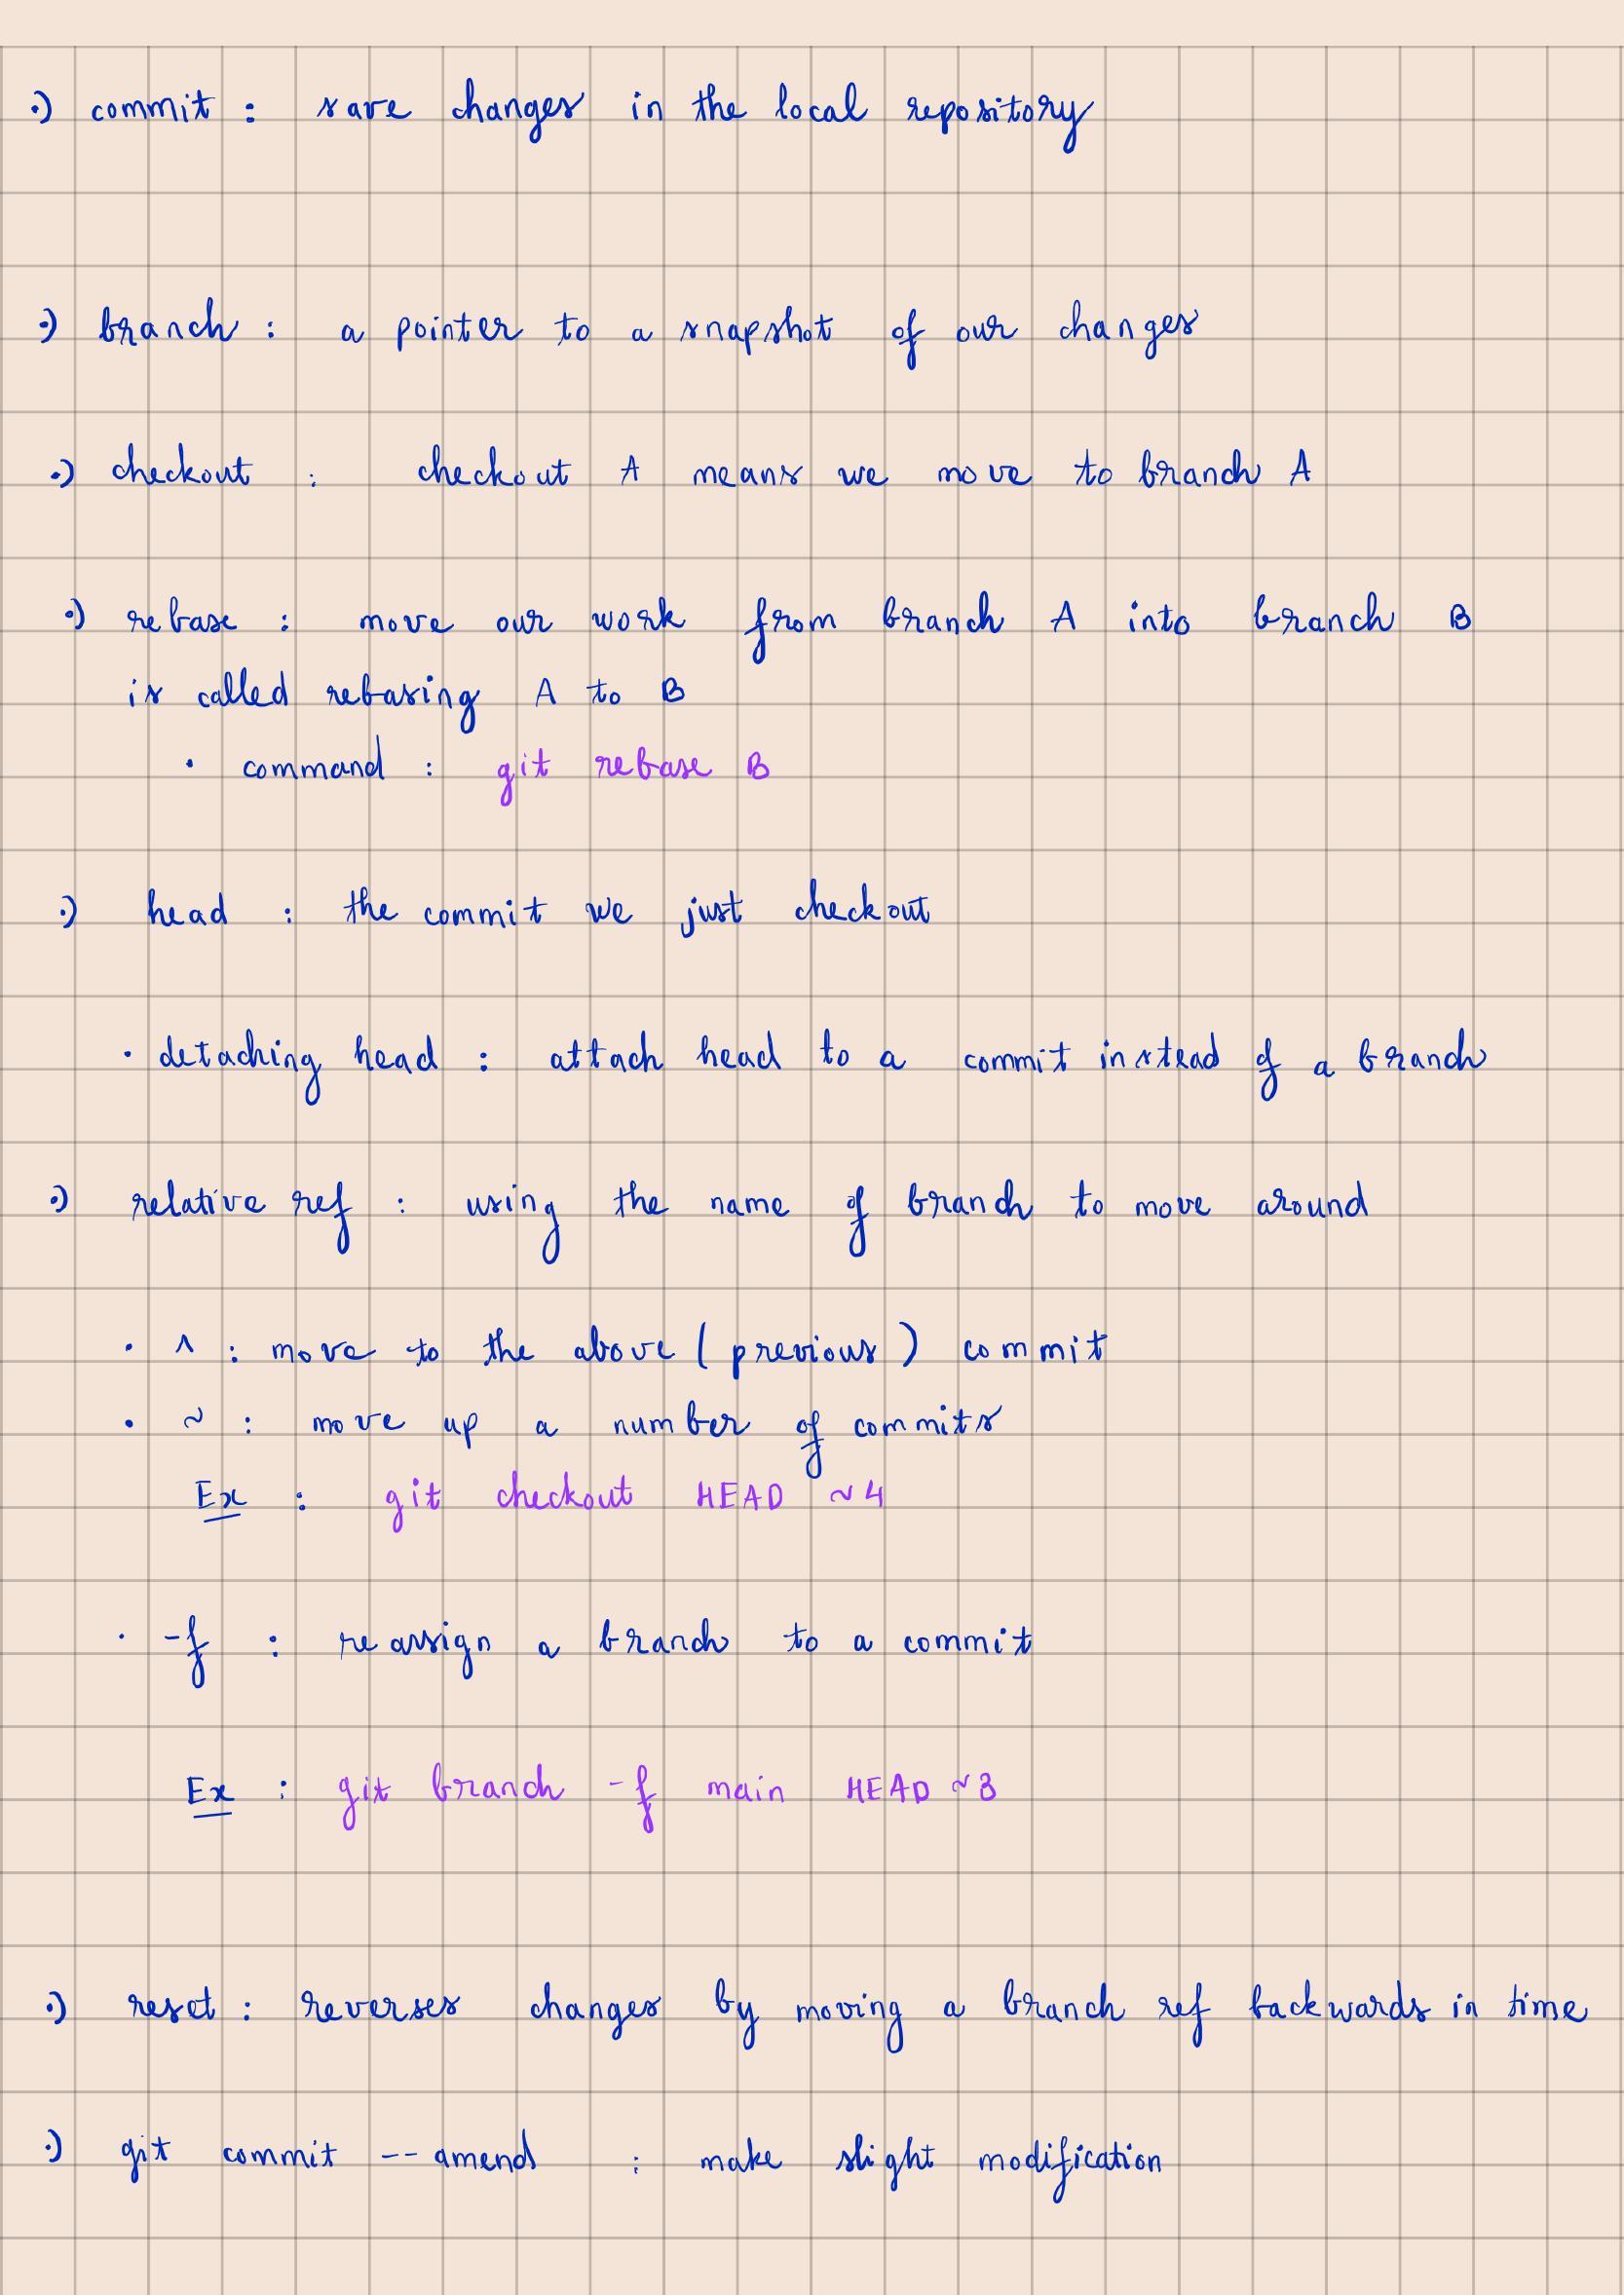 ·) commit : save changes in the local repository
·) branch : a pointer to a snapshot of our changes
·) checkout : checkout A means we move to branch A
·) rebase : move our work from branch A into branch B
is called rebasing A to B
· command : git rebase B
·) head : the commit we just checkout
· detaching head : attach head to a commit instead of a branch
·) relative ref : using the name of branch to move around
· ^ : move to the above (previous) commit
· ~ : move up a number of commits
Ex : git checkout HEAD ~4
· -f : reassign a branch to a commit
Ex : git branch -f main HEAD ~3
·) reset : reverses changes by moving a branch ref backwards in time
·) git commit --amend : make slight modification